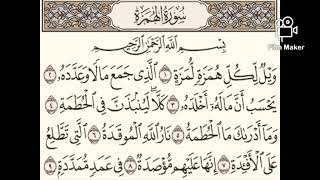 سُورَةُ الهُمَزَةِ
Film Maker
بِسْمِ اللَّهِ الرَّحْمَٰنِ الرَّحِيمِ
وَيْلٌ لِّكُلِّ هُمَزَةٍ لُّمَزَةٍ ١ الَّذِي جَمَعَ مَالًا وَعَدَّدَهُ ٢
يَحْسَبُ أَنَّ مَالَهُ أَخْلَدَهُ ٣ كَلَّا لَيُنبَذَنَّ فِي الْحُطَمَةِ ٤
وَمَا أَدْرَاكَ مَا الْحُطَمَةُ ٥ نَارُ اللَّهِ الْمُوقَدَةُ ٦ الَّتِي تَطَّلِعُ
عَلَى الْأَفْئِدَةِ ٧ إِنَّهَا عَلَيْهِم مُّؤْصَدَةٌ ٨ فِي عَمَدٍ مُّمَدَّدَةٍ ٩